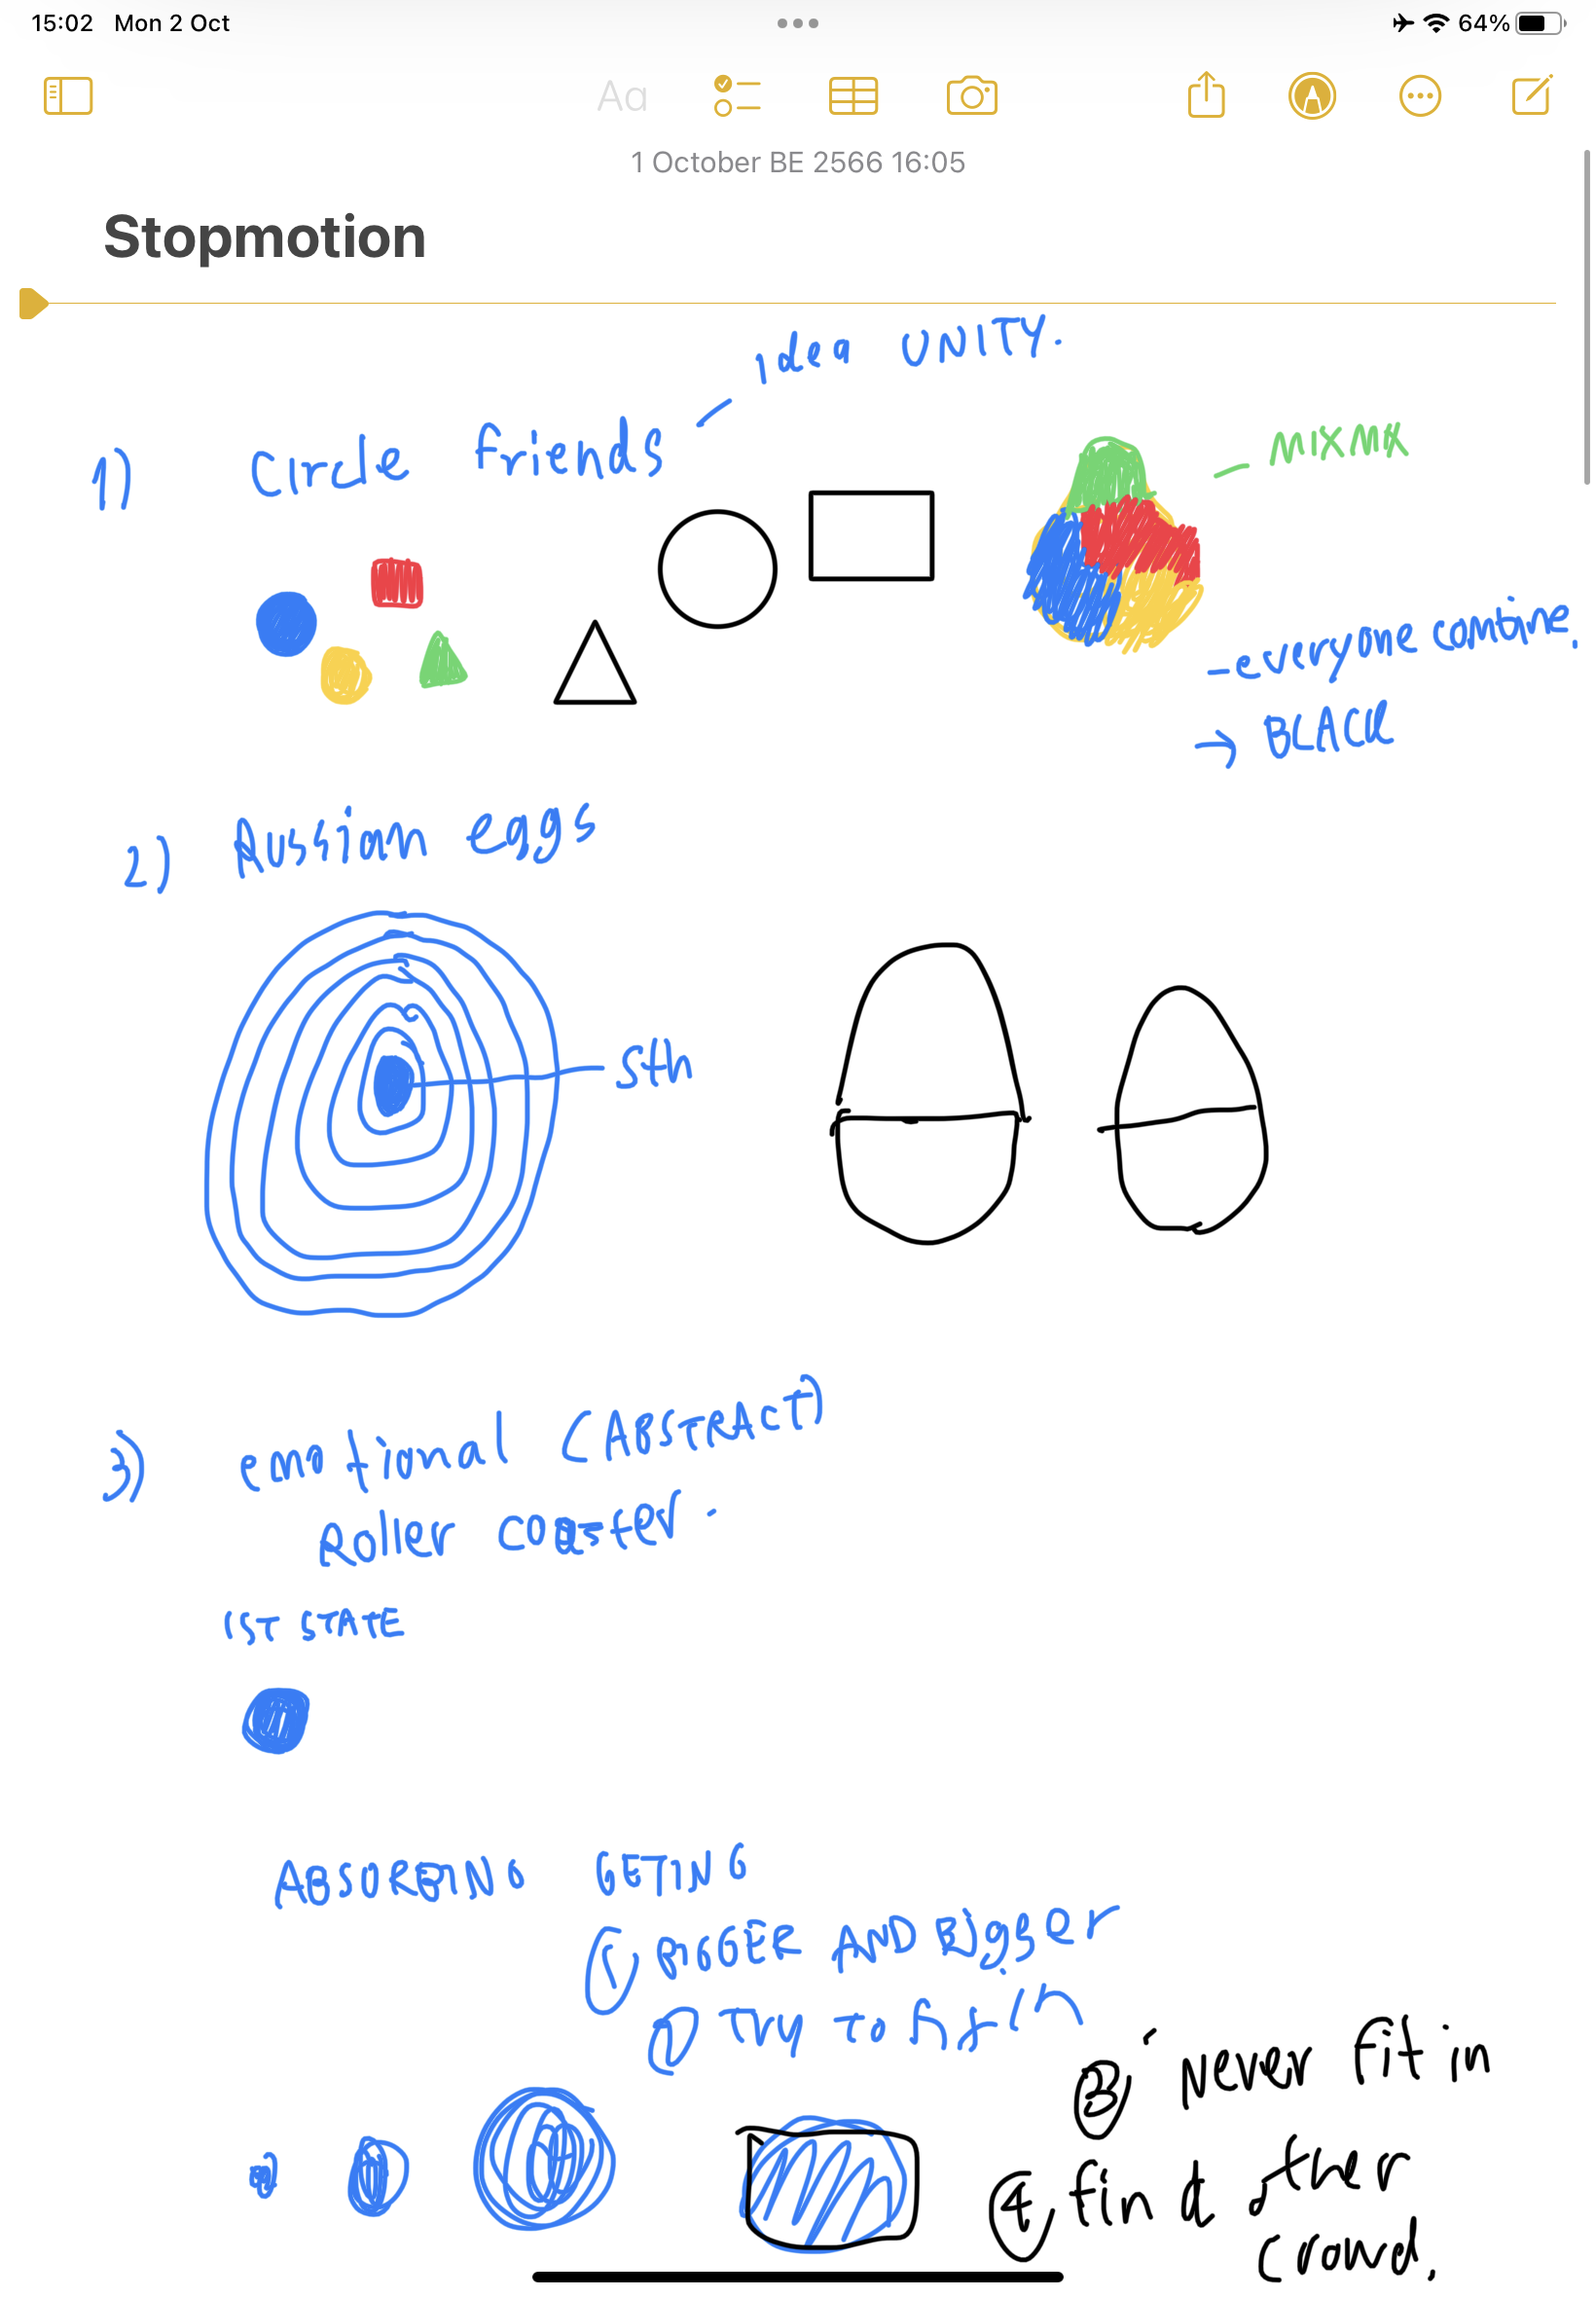 15:02 Mon 2 Oct
64%
Aa
1 October BE 2566 16:05
Stopmotion
idea UNITY.
1) Circle friends
MIXMIX
-everyone combine.
→ BLACK
2) Russian eggs
sth
3) emotional (ABSTRACT)
Roller coaster.
1ST STATE
ABSORBING GETING
① BIGGER AND Bigger
TRY TO fit in
③ Never fit in
④ find other
crowd.